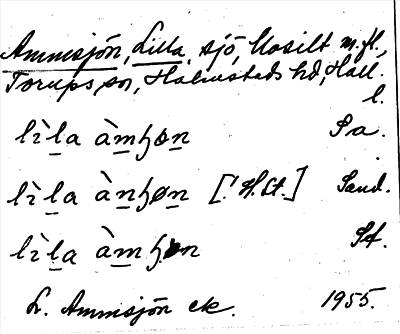 Ammsjön, Lilla, sjö, Mosilt m.fl.,
Torups sn, Halmstads hd, Hall.
l.
lìla àmɧøn Pa.
lìla ànɧøn [! H.St.] Sand.
lìla àmɧøn St.
L. Ammsjön ek. 1955.